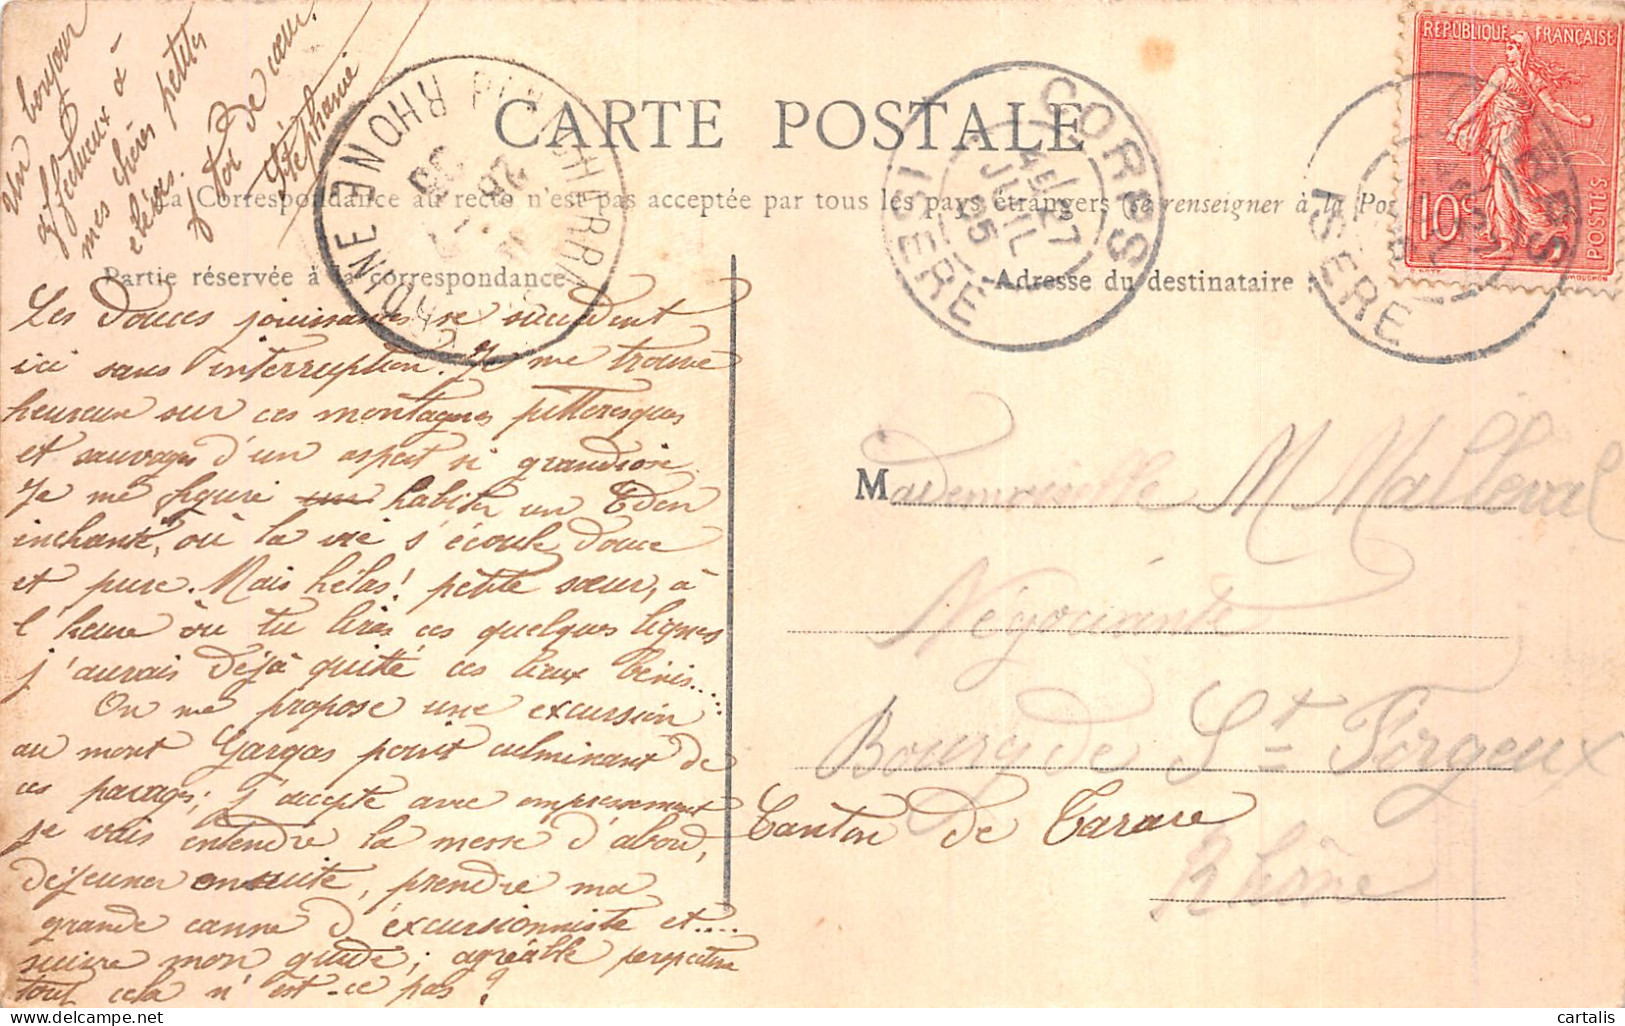 Un bonjour
affectueux à
mes chères petites
élèves.
de cœur.
Stéphanie
CARTE POSTALE
La Correspondance au recto n'est pas acceptée par tous les pays étrangers (Se renseigner à la Pos
Partie réservée à la correspondance
Adresse du destinataire :
RÉPUBLIQUE FRANÇAISE
10c
POSTES
CORPS
ISERE
27
JUIL
05
CORPS
ISERE
RHONE
Les douces jouissances se succèdent
ici sans interruption. Je me trouve
heureuse sur ces montagnes pittoresques
et sauvages d'un aspect si grandiose
Je me figure habiter un Eden
enchanté, où la vie s'écoule douce
et pure. Mais hélas! petite sœur, à
l'heure où tu liras ces quelques lignes
j'aurais déjà quitté ces lieux bénis....
On me propose une excursion
au mont Gargas point culminant de
ces parages; J'accepte avec empressement
je vais entendre la messe d'abord,
déjeuner ensuite, prendre ma
grande canne d'excursionniste et....
suivre mon guide; agréable perspective
tout cela n'est-ce pas?
Mademoiselle M Malleval
Négociante
Bourg de St Forgeux
Canton de Tarare
Rhône
cartalis